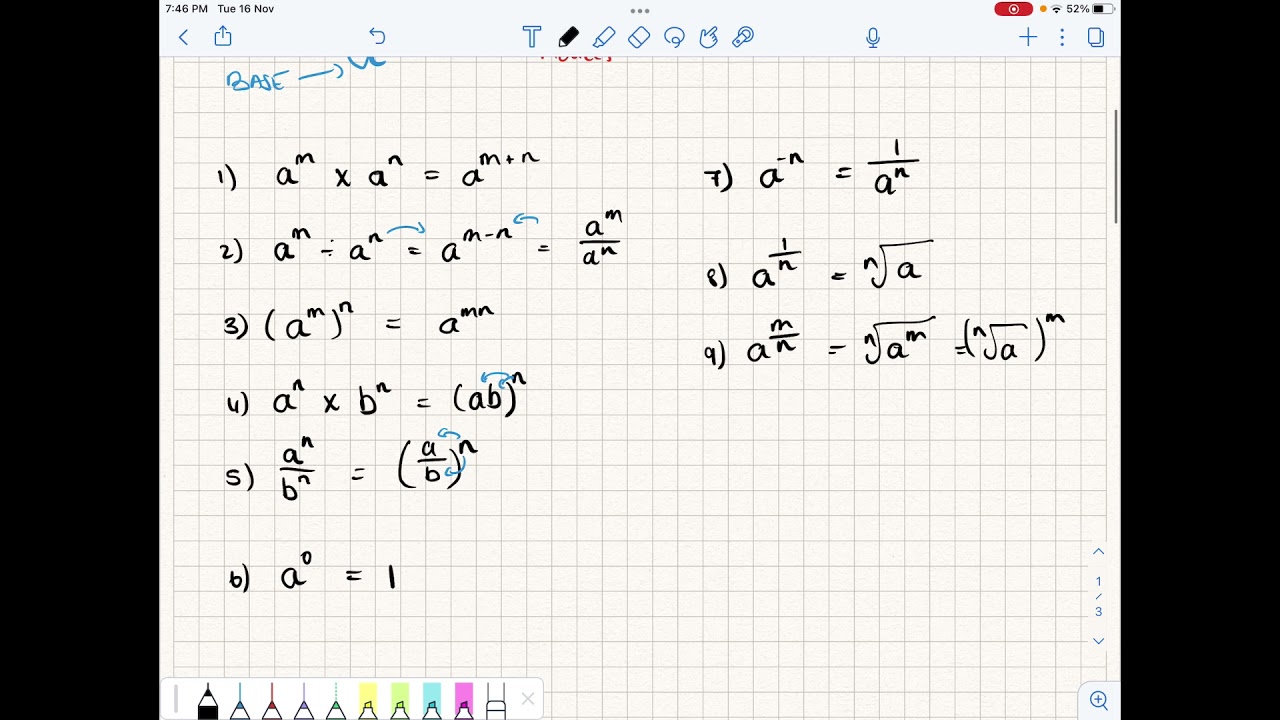 7:46 PM Tue 16 Nov
52%
T
BASE
1) a^m x a^n = a^{m+n}
2) a^m ÷ a^n = a^{m-n} = \frac{a^m}{a^n}
3) (a^m)^n = a^{mn}
4) a^n x b^n = (ab)^n
5) \frac{a^n}{b^n} = (\frac{a}{b})^n
6) a^0 = 1
7) a^{-n} = \frac{1}{a^n}
8) a^{\frac{1}{n}} = \sqrt[n]{a}
9) a^{\frac{m}{n}} = \sqrt[n]{a^m} = (\sqrt[n]{a})^m
1
/
3